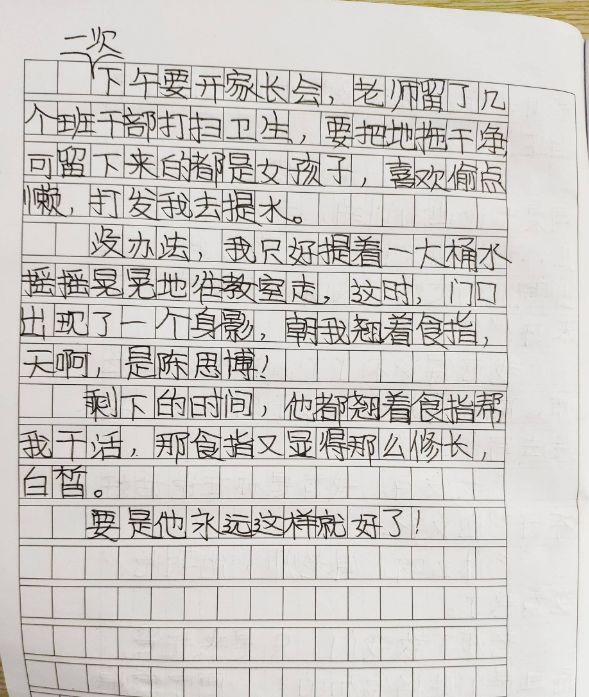 一次
下午要开家长会，老师留了几
个班干部打扫卫生，要把地拖干净
可留下来的都是女孩子，喜欢偷点
懒，打发我去提水。
没办法，我只好提着一大桶水
摇摇晃晃地往教室走。这时，门口
出现了一个身影，朝我翘着食指，
天啊，是陈思博！
剩下的时间，他都翘着食指帮
我干活，那食指又显得那么修长，
白皙。
要是他永远这样就好了！